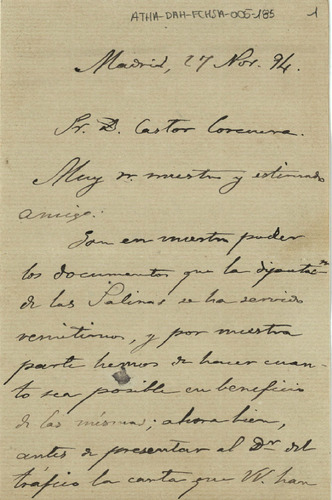 ATHA-DAH-FCHSA-005-185
1
Madrid, 27 Nov. 94.
Sr. D. Castor Corcuera.
Muy sr. nuestro y estimado
amigo:
Son en nuestro poder
los documentos que la diputacion
de las Salinas se ha servido
remitirnos, y por nuestra
parte hemos de hacer cuan-
to sea posible en beneficio
de las mismas; ahora bien,
antes de presentar al Dr. del
tráfico la carta que VV. han